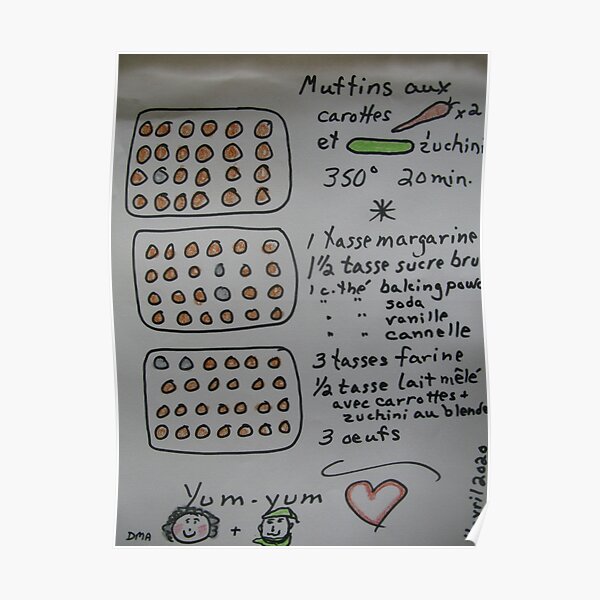 Muffins aux
carottes x2
et zuchini
350° 20 min.
1 tasse margarine
1 1/2 tasse sucre bru
1 c. thé baking pow
" " soda
" " vanille
" " cannelle
3 tasses farine
1/2 tasse lait mêlé
avec carrottes +
zuchini au blende
3 oeufs
Yum-yum
+
DMA
avril 2020